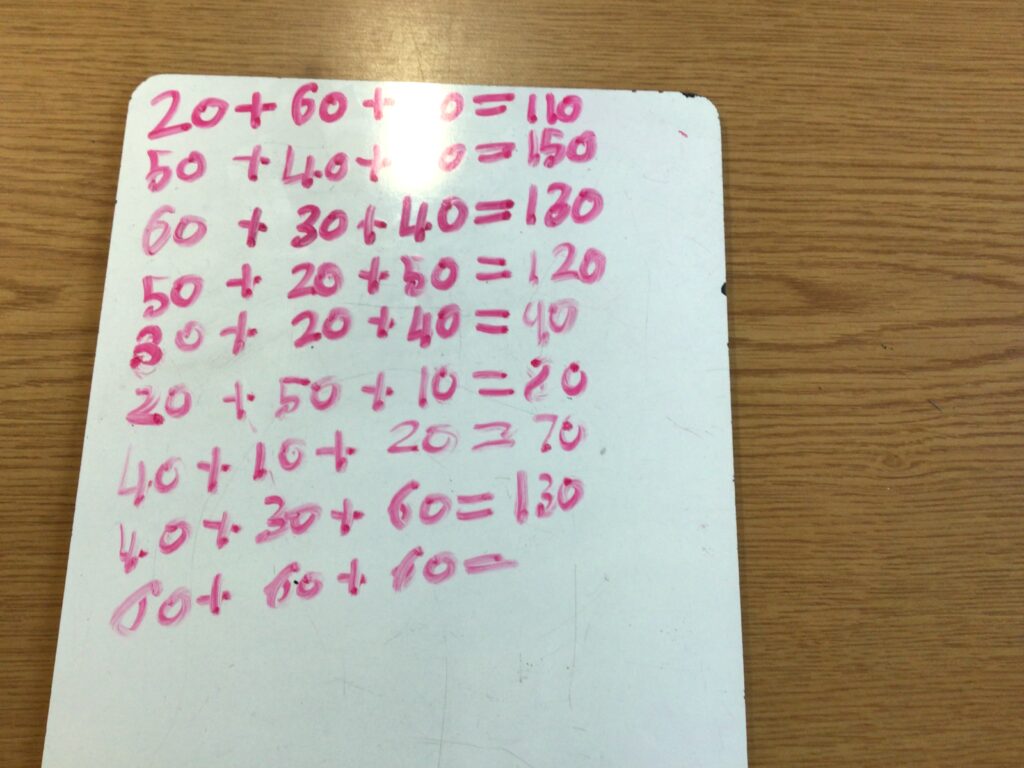 20 + 60 + 0 = 110
50 + 40 + 0 = 150
60 + 30 + 40 = 130
50 + 20 + 50 = 120
30 + 20 + 40 = 90
20 + 50 + 10 = 80
40 + 10 + 20 = 70
40 + 30 + 60 = 130
60 + 60 + 60 =